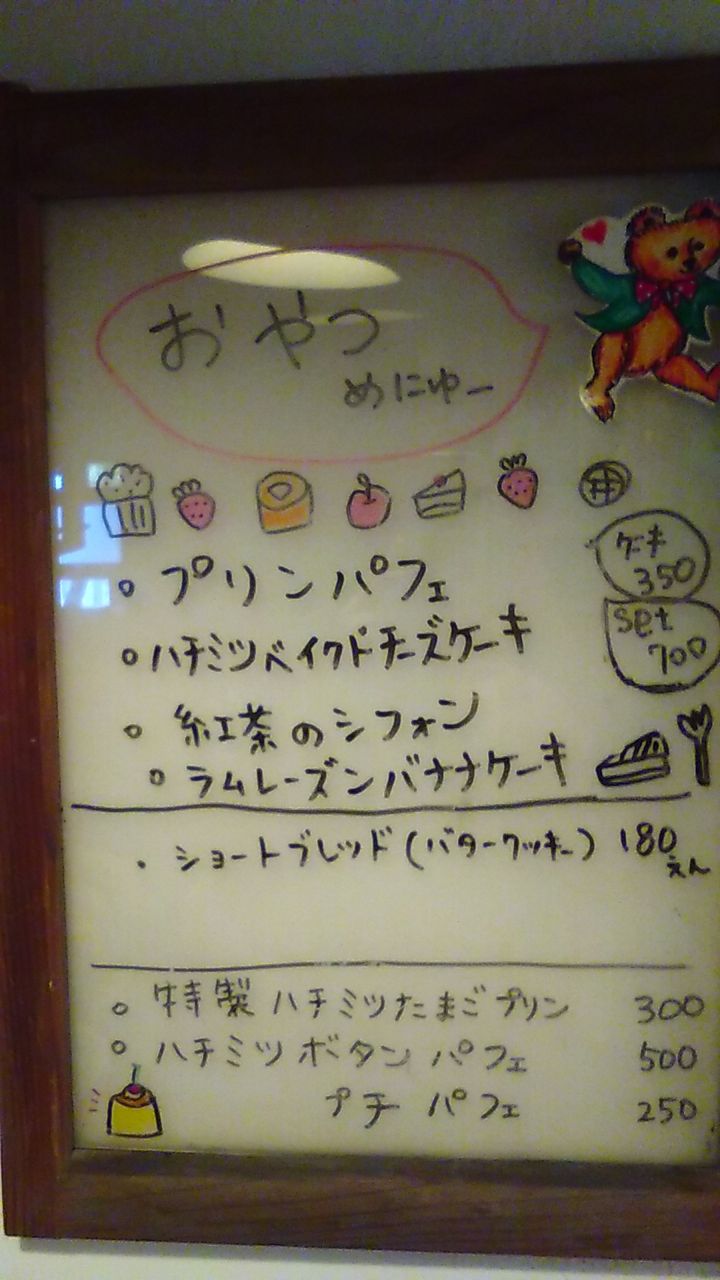 おやつ
めにゅー
ケーキ
350
set
700
。プリンパフェ
。ハチミツベイクドチーズケーキ
。紅茶のシフォン
。ラムレーズンバナナケーキ
・ショートブレッド(バタークッキー) 180えん
。特製ハチミツたまごプリン 300
。ハチミツボタンパフェ 500
プチパフェ 250